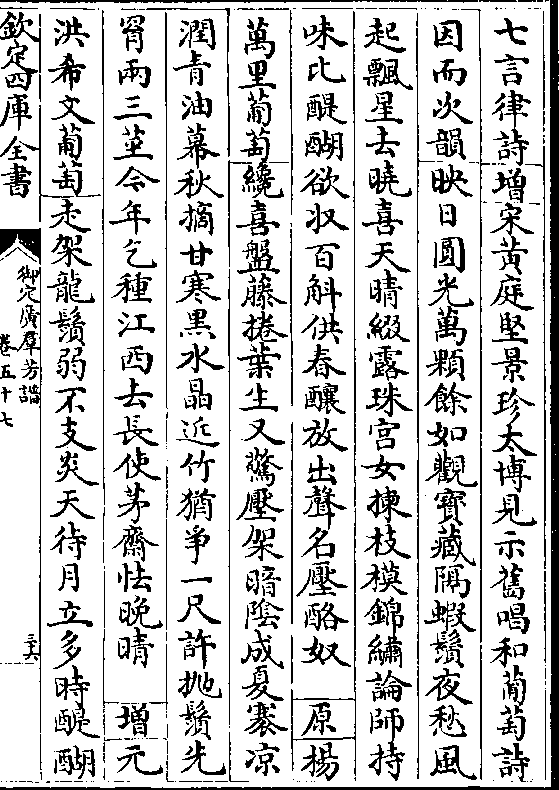 七言律詩增宋黃庭堅景珍太博見示舊唱和葡萄詩
因而次韻映日圓光萬顆餘如觀寶藏隔蝦鬚夜愁風
起飄星去曉喜天晴綴露珠宮女揀枝模錦繡論師持
味比醍醐欲収百斛供春釀放出聲名壓酪奴原楊
萬里葡萄纔喜盤藤捲葉生又驚壓架暗陰成夏褰凉
潤青油幕秋摘甘寒黑水晶近竹猶爭一尺許抛鬚先
罥兩三莖今年乞種江西去長使茅齋怯晚晴增元
洪希文葡萄走架龍鬚弱不支炎天待月立多時醍醐
欽定四庫全書
御定廣羣芳譜
卷五十七
三六